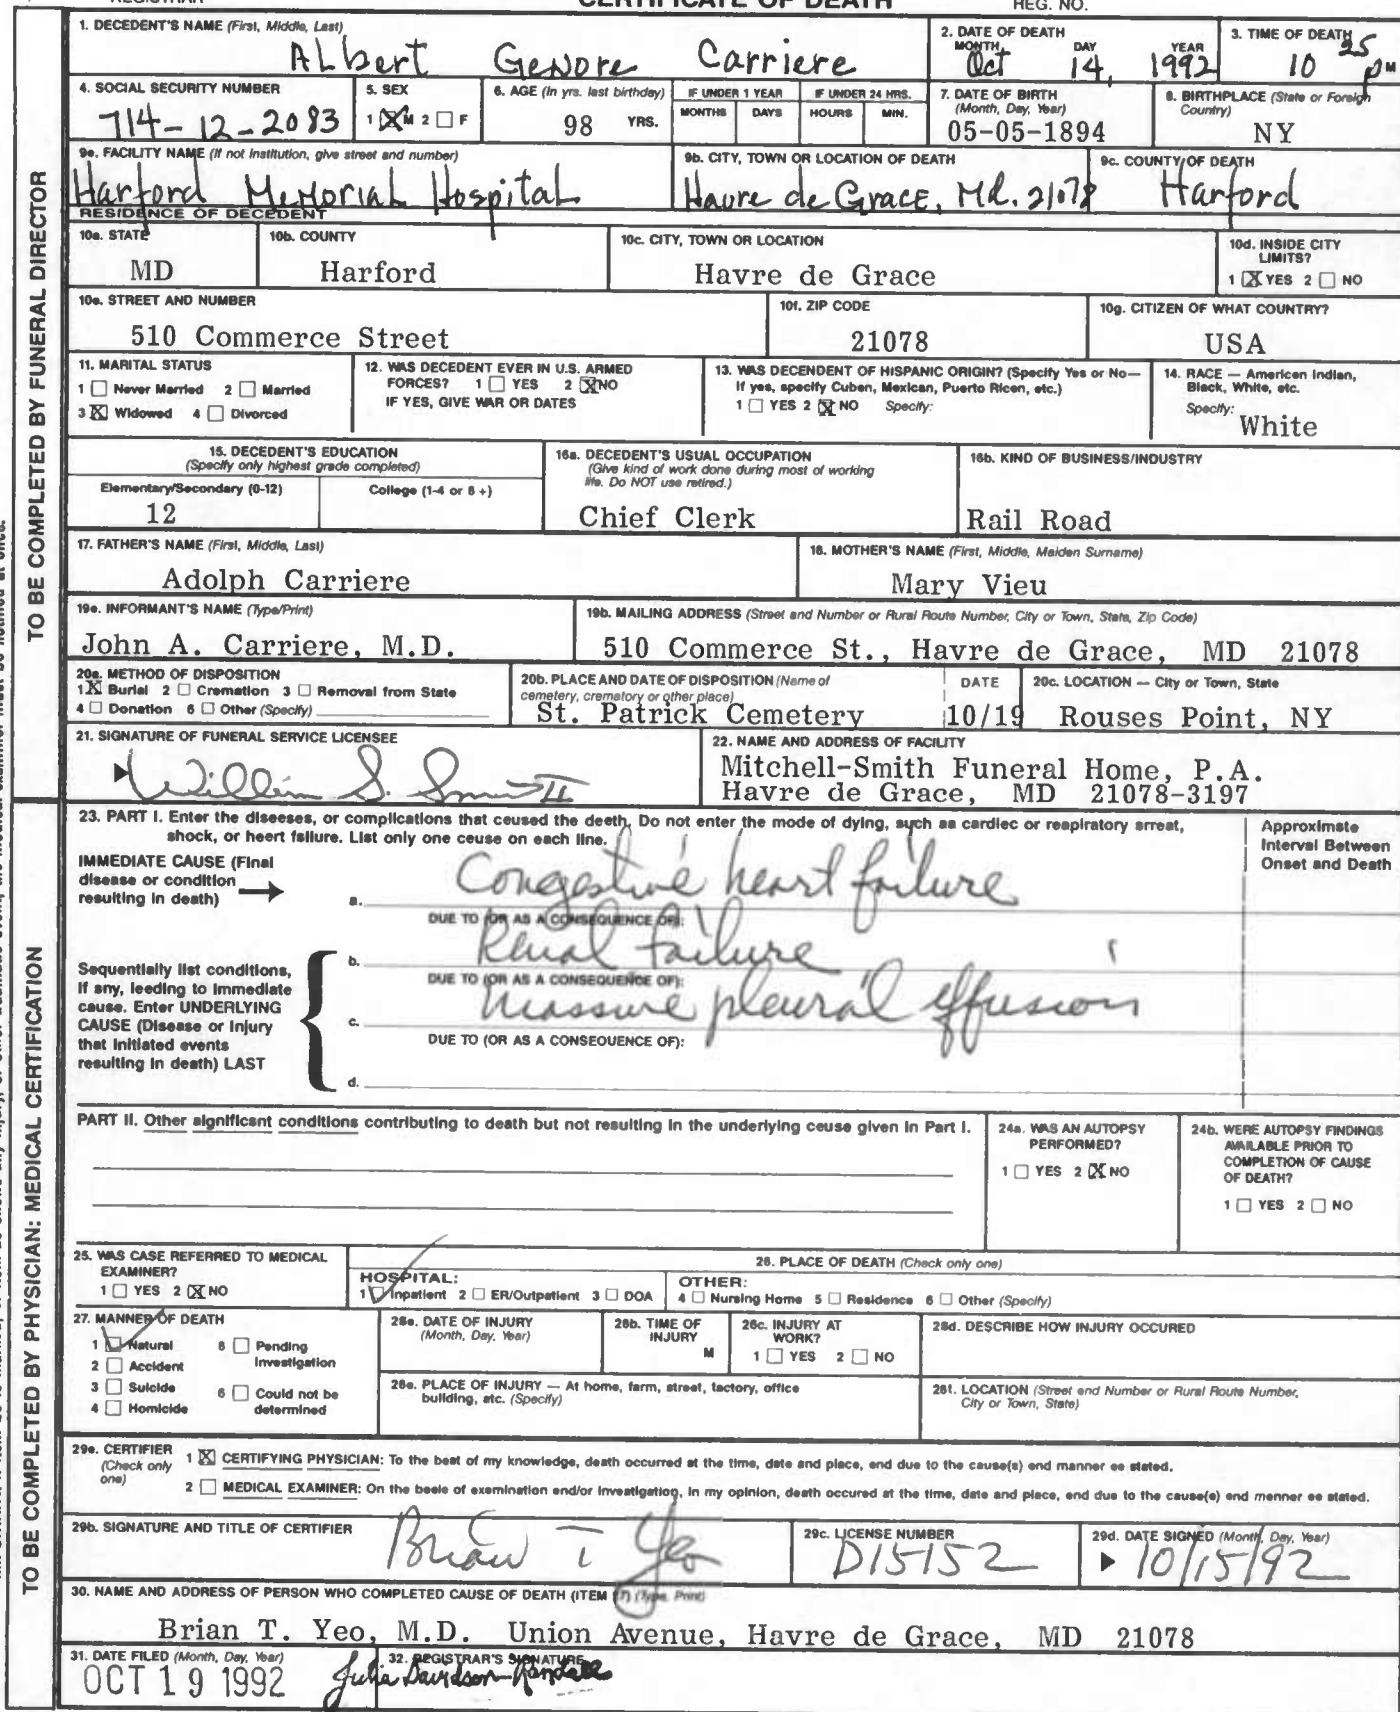 REGISTRAR CERTIFICATE OF DEATH REG. NO.
TO BE COMPLETED BY FUNERAL DIRECTOR
1. DECEDENT'S NAME (First, Middle, Last)
Albert Genore Carriere
2. DATE OF DEATH
MONTH DAY YEAR
Oct 14, 1992
3. TIME OF DEATH
10 25 PM
4. SOCIAL SECURITY NUMBER
714-12-2083
5. SEX
1 ☒ M 2 ☐ F
6. AGE (In yrs. last birthday)
98 YRS.
IF UNDER 1 YEAR
MONTHS DAYS
IF UNDER 24 HRS.
HOURS MIN.
7. DATE OF BIRTH
(Month, Day, Year)
05-05-1894
8. BIRTHPLACE (State or Foreign
Country)
NY
9a. FACILITY NAME (If not institution, give street and number)
Harford Memorial Hospital
9b. CITY, TOWN OR LOCATION OF DEATH
Havre de Grace, Md. 21078
9c. COUNTY OF DEATH
Harford
RESIDENCE OF DECEDENT
10a. STATE
MD
10b. COUNTY
Harford
10c. CITY, TOWN OR LOCATION
Havre de Grace
10d. INSIDE CITY
LIMITS?
1 ☒ YES 2 ☐ NO
10e. STREET AND NUMBER
510 Commerce Street
10f. ZIP CODE
21078
10g. CITIZEN OF WHAT COUNTRY?
USA
11. MARITAL STATUS
1 ☐ Never Married 2 ☐ Married
3 ☒ Widowed 4 ☐ Divorced
12. WAS DECEDENT EVER IN U.S. ARMED
FORCES? 1 ☐ YES 2 ☒ NO
IF YES, GIVE WAR OR DATES
13. WAS DECENDENT OF HISPANIC ORIGIN? (Specify Yes or No—
If yes, specify Cuban, Mexican, Puerto Rican, etc.)
1 ☐ YES 2 ☒ NO Specify:
14. RACE — American Indian,
Black, White, etc.
Specify:
White
15. DECEDENT'S EDUCATION
(Specify only highest grade completed)
Elementary/Secondary (0-12) College (1-4 or 5 +)
12
16a. DECEDENT'S USUAL OCCUPATION
(Give kind of work done during most of working
life. Do NOT use retired.)
Chief Clerk
16b. KIND OF BUSINESS/INDUSTRY
Rail Road
17. FATHER'S NAME (First, Middle, Last)
Adolph Carriere
18. MOTHER'S NAME (First, Middle, Maiden Surname)
Mary Vieu
19a. INFORMANT'S NAME (Type/Print)
John A. Carriere, M.D.
19b. MAILING ADDRESS (Street and Number or Rural Route Number, City or Town, State, Zip Code)
510 Commerce St., Havre de Grace, MD 21078
20a. METHOD OF DISPOSITION
1 ☒ Burial 2 ☐ Cremation 3 ☐ Removal from State
4 ☐ Donation 5 ☐ Other (Specify)
20b. PLACE AND DATE OF DISPOSITION (Name of
cemetery, crematory or other place)
St. Patrick Cemetery
DATE
10/19
20c. LOCATION — City or Town, State
Rouses Point, NY
21. SIGNATURE OF FUNERAL SERVICE LICENSEE
William S. Smith II
22. NAME AND ADDRESS OF FACILITY
Mitchell-Smith Funeral Home, P.A.
Havre de Grace, MD 21078-3197
TO BE COMPLETED BY PHYSICIAN: MEDICAL CERTIFICATION
23. PART I. Enter the diseases, or complications that caused the death. Do not enter the mode of dying, such as cardiac or respiratory arrest,
shock, or heart failure. List only one cause on each line.
Approximate
Interval Between
Onset and Death
IMMEDIATE CAUSE (Final
disease or condition
resulting in death)
a. Congestive heart failure
DUE TO (OR AS A CONSEQUENCE OF):
b. Renal failure
DUE TO (OR AS A CONSEQUENCE OF):
c. Massive pleural effusion
DUE TO (OR AS A CONSEQUENCE OF):
d.
Sequentially list conditions,
if any, leading to immediate
cause. Enter UNDERLYING
CAUSE (Disease or injury
that initiated events
resulting in death) LAST
PART II. Other significant conditions contributing to death but not resulting in the underlying cause given in Part I.
24a. WAS AN AUTOPSY
PERFORMED?
1 ☐ YES 2 ☒ NO
24b. WERE AUTOPSY FINDINGS
AVAILABLE PRIOR TO
COMPLETION OF CAUSE
OF DEATH?
1 ☐ YES 2 ☐ NO
25. WAS CASE REFERRED TO MEDICAL
EXAMINER?
1 ☐ YES 2 ☒ NO
26. PLACE OF DEATH (Check only one)
HOSPITAL:
1 ☑ Inpatient 2 ☐ ER/Outpatient 3 ☐ DOA
OTHER:
4 ☐ Nursing Home 5 ☐ Residence 6 ☐ Other (Specify)
27. MANNER OF DEATH
1 ☑ Natural
2 ☐ Accident
3 ☐ Suicide
4 ☐ Homicide
5 ☐ Pending
Investigation
6 ☐ Could not be
determined
28a. DATE OF INJURY
(Month, Day, Year)
28b. TIME OF
INJURY
M
28c. INJURY AT
WORK?
1 ☐ YES 2 ☐ NO
28d. DESCRIBE HOW INJURY OCCURED
28e. PLACE OF INJURY — At home, farm, street, factory, office
building, etc. (Specify)
28f. LOCATION (Street and Number or Rural Route Number,
City or Town, State)
29a. CERTIFIER
(Check only
one)
1 ☒ CERTIFYING PHYSICIAN: To the best of my knowledge, death occurred at the time, date and place, and due to the cause(s) and manner as stated.
2 ☐ MEDICAL EXAMINER: On the basis of examination and/or investigation, in my opinion, death occured at the time, date and place, and due to the cause(s) and manner as stated.
29b. SIGNATURE AND TITLE OF CERTIFIER
Brian T Yeo
29c. LICENSE NUMBER
D15152
29d. DATE SIGNED (Month, Day, Year)
10/15/92
30. NAME AND ADDRESS OF PERSON WHO COMPLETED CAUSE OF DEATH (ITEM 27) (Type, Print)
Brian T. Yeo, M.D. Union Avenue, Havre de Grace, MD 21078
31. DATE FILED (Month, Day, Year)
OCT 19 1992
32. REGISTRAR'S SIGNATURE
Julia Davidson-Randall